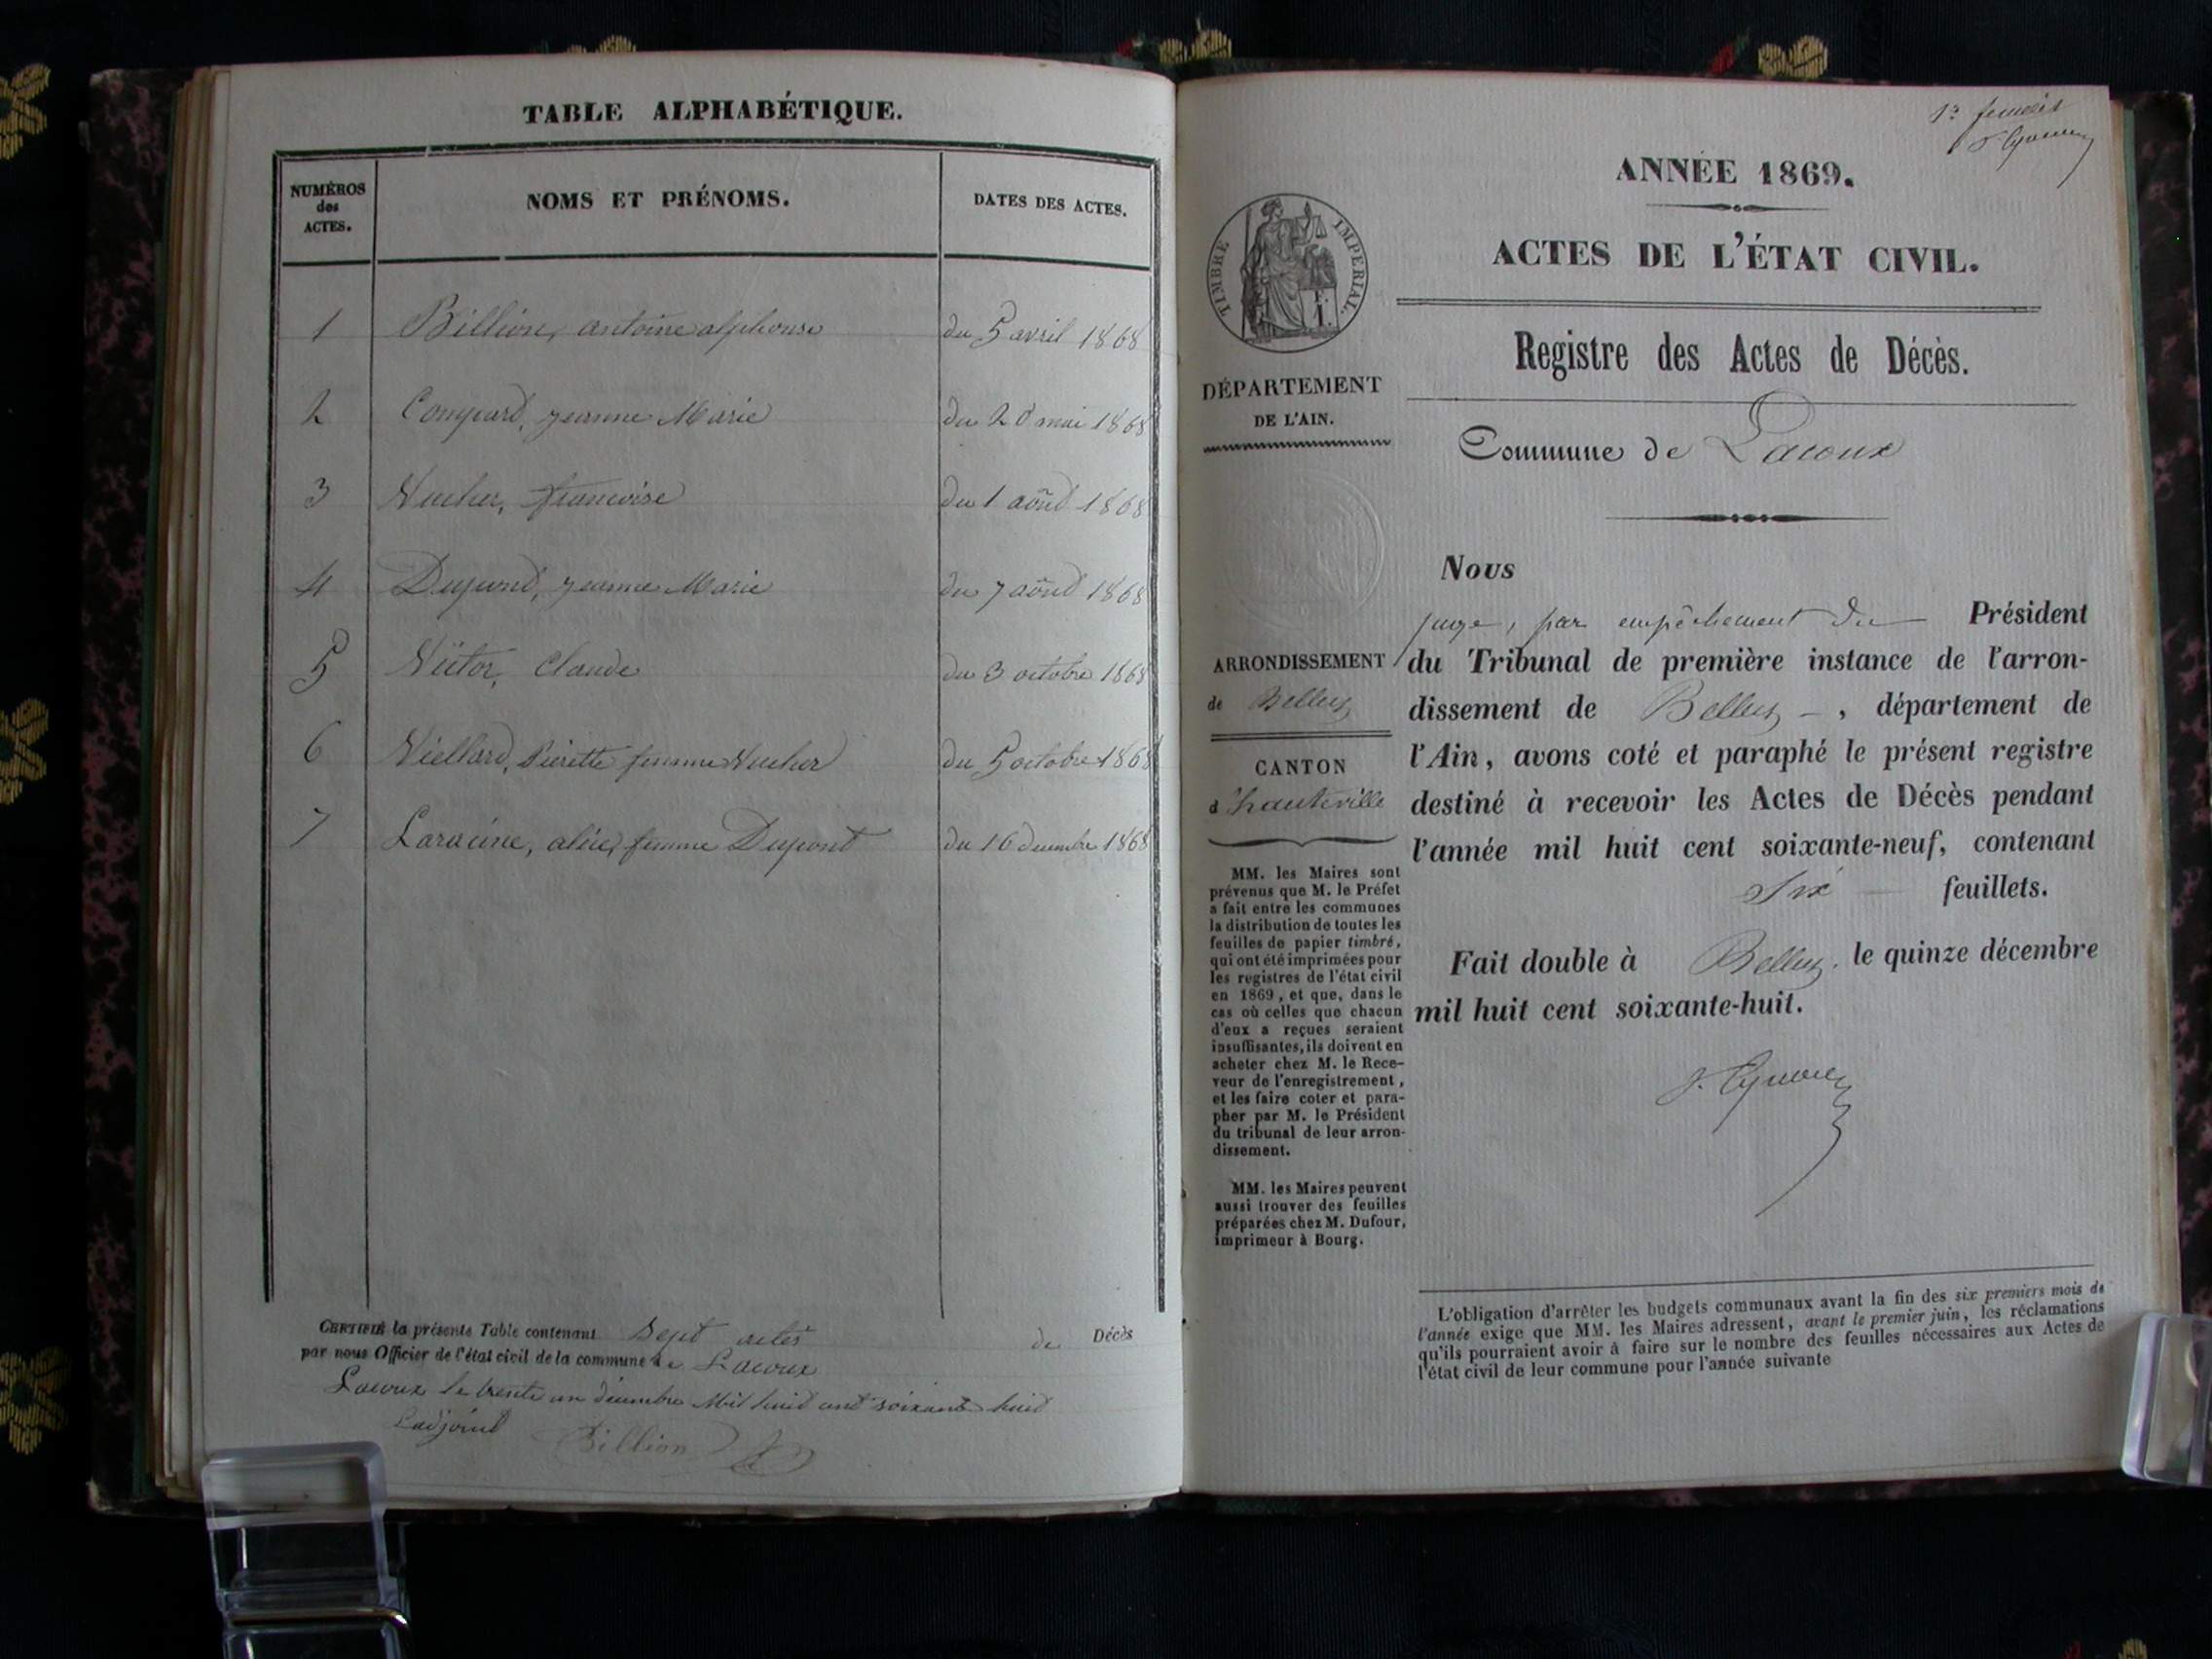 TABLE ALPHABÉTIQUE.
NUMÉROS
des
ACTES.
NOMS ET PRÉNOMS.
DATES DES ACTES.
1 Billion, antoine alphonse du 5 avril 1868
2 jeanne Marie du 20 mai 1868
3 françoise du 1 août 1868
4 Dupond, jeanne Marie du 7 août 1868
5 Claude du 3 octobre 1868
6 Pierette femme du 5 octobre 1868
7 Laracine, femme Dupont du 16 decembre 1868
CERTIFIÉ la présente Table contenant Sept actes de Décès
par nous Officier de l'état civil de la commune de Lacoux
Lacoux le trente un décembre Mil huit cent soixante huit
Ladjoint
Billion
1er feuillet
ANNÉE 1869.
ACTES DE L'ÉTAT CIVIL.
Registre des Actes de Décès.
Commune de Lacoux
TIMBRE IMPERIAL.
DÉPARTEMENT
DE L'AIN.
ARRONDISSEMENT
de Belley
CANTON
d'hauteville
MM. les Maires sont
prévenus que M. le Préfet
a fait entre les communes
la distribution de toutes les
feuilles de papier timbré,
qui ont été imprimées pour
les registres de l'état civil
en 1869, et que, dans le
cas où celles que chacun
d'eux a reçues seraient
insuffisantes, ils doivent en
acheter chez M. le Rece-
veur de l'enregistrement,
et les faire coter et para-
pher par M. le Président
du tribunal de leur arron-
dissement.
MM. les Maires peuvent
aussi trouver des feuilles
préparées chez M. Dufour,
imprimeur à Bourg.
Nous
juge, par empêchement du Président
du Tribunal de première instance de l'arron-
dissement de Belley, département de
l'Ain, avons coté et paraphé le présent registre
destiné à recevoir les Actes de Décès pendant
l'année mil huit cent soixante-neuf, contenant
Six feuillets.
Fait double à Belley, le quinze décembre
mil huit cent soixante-huit.
L'obligation d'arrêter les budgets communaux avant la fin des six premiers mois de
l'année exige que MM. les Maires adressent, avant le premier juin, les réclamations
qu'ils pourraient avoir à faire sur le nombre des feuilles nécessaires aux Actes de
l'état civil de leur commune pour l'année suivante